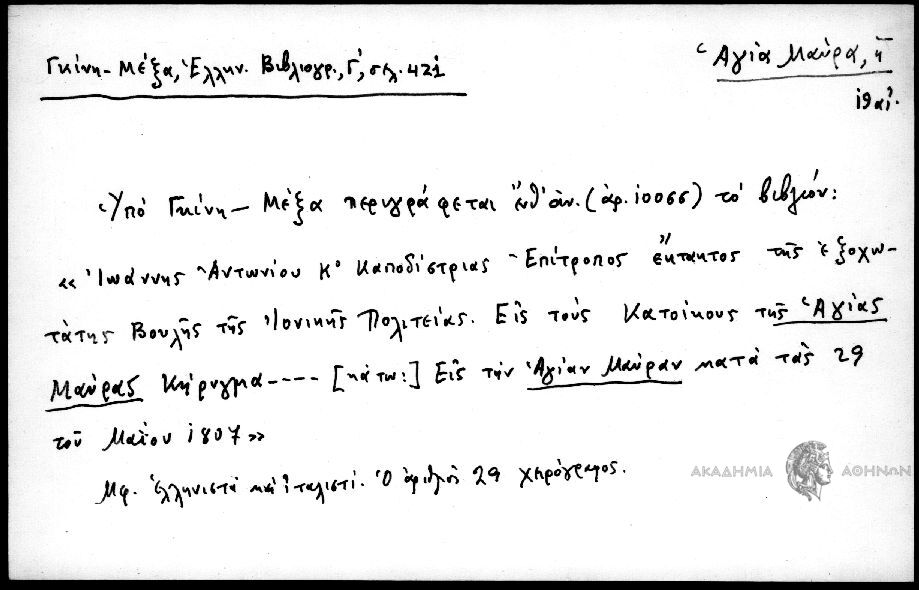 Γκίνη - Μέξα, Ἑλλην. Βιβλιογρ., Γ΄, σελ. 421
Ἁγία Μαύρα, ἡ
19 αἰ.
Ὑπό Γκίνη - Μέξα περιγράφεται ἐνθ' ἀν. (ἀρ. 10055) τό βιβλίον:
«Ἰωάννης Ἀντωνίου Κ° Καποδίστριας Ἐπίτροπος ἔκτακτος τῆς ἐξοχω-
τάτης Βουλῆς τῆς Ἰονικῆς Πολιτείας. Εἰς τούς Κατοίκους τῆς Ἁγίας
Μαύρας Κήρυγμα---- [κάτω:] Εἰς τήν Ἁγίαν Μαύραν κατά τάς 29
τοῦ Μαΐου 1807»
Μφ. ἑλληνιστί καί ἰταλιστί. Ὁ ἀριθμός 29 χειρόγραφος.
ΑΚΑΔΗΜΙΑ ΑΘΗΝΩΝ